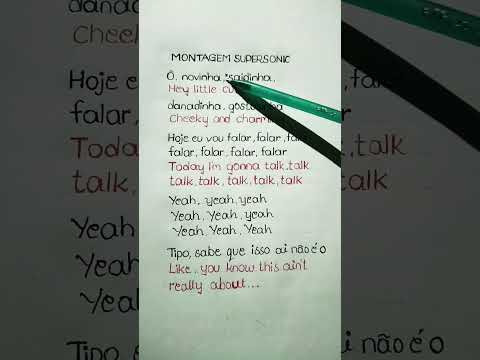 MONTAGEM SUPERSONIC
Ô, novinha, saidinha,
Hey little
danadinha,
Cheeky and
Hoje eu vou falar, falar,
falar, falar, falar, falar
Today I'm gonna talk, talk
talk, talk, talk, talk, talk
Yeah, yeah, yeah
Yeah, Yeah, yeah
Yeah, Yeah, Yeah
Tipo, sabe que isso ai não é o
Like, you know this ain't
really about...